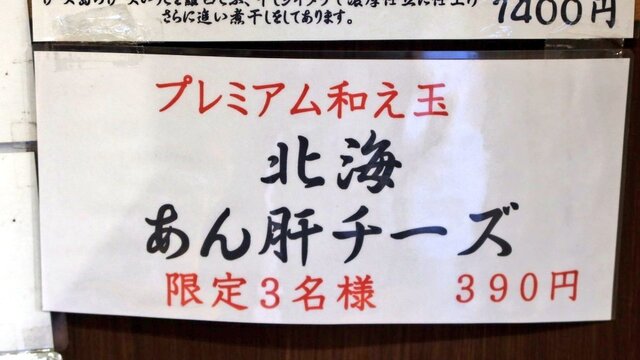 さらに追い煮干しをしてあります。
1400円
プレミアム和え玉
北海
あん肝チーズ
限定3名様 390円